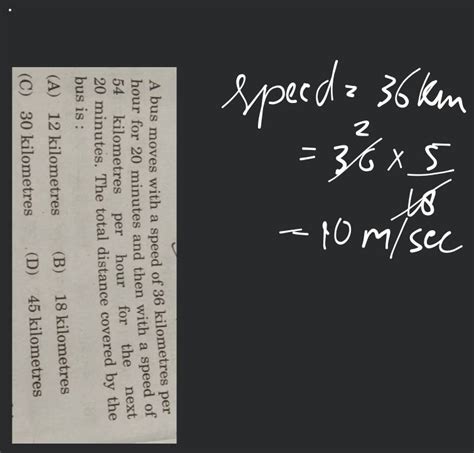 A bus moves with a speed of 36 kilometres per
hour for 20 minutes and then with a speed of
54 kilometres per hour for the next
20 minutes. The total distance covered by the
bus is :
(A) 12 kilometres (B) 18 kilometres
(C) 30 kilometres (D) 45 kilometres
speed = 36 km
2
= 36 × 5
18
= 10 m/sec